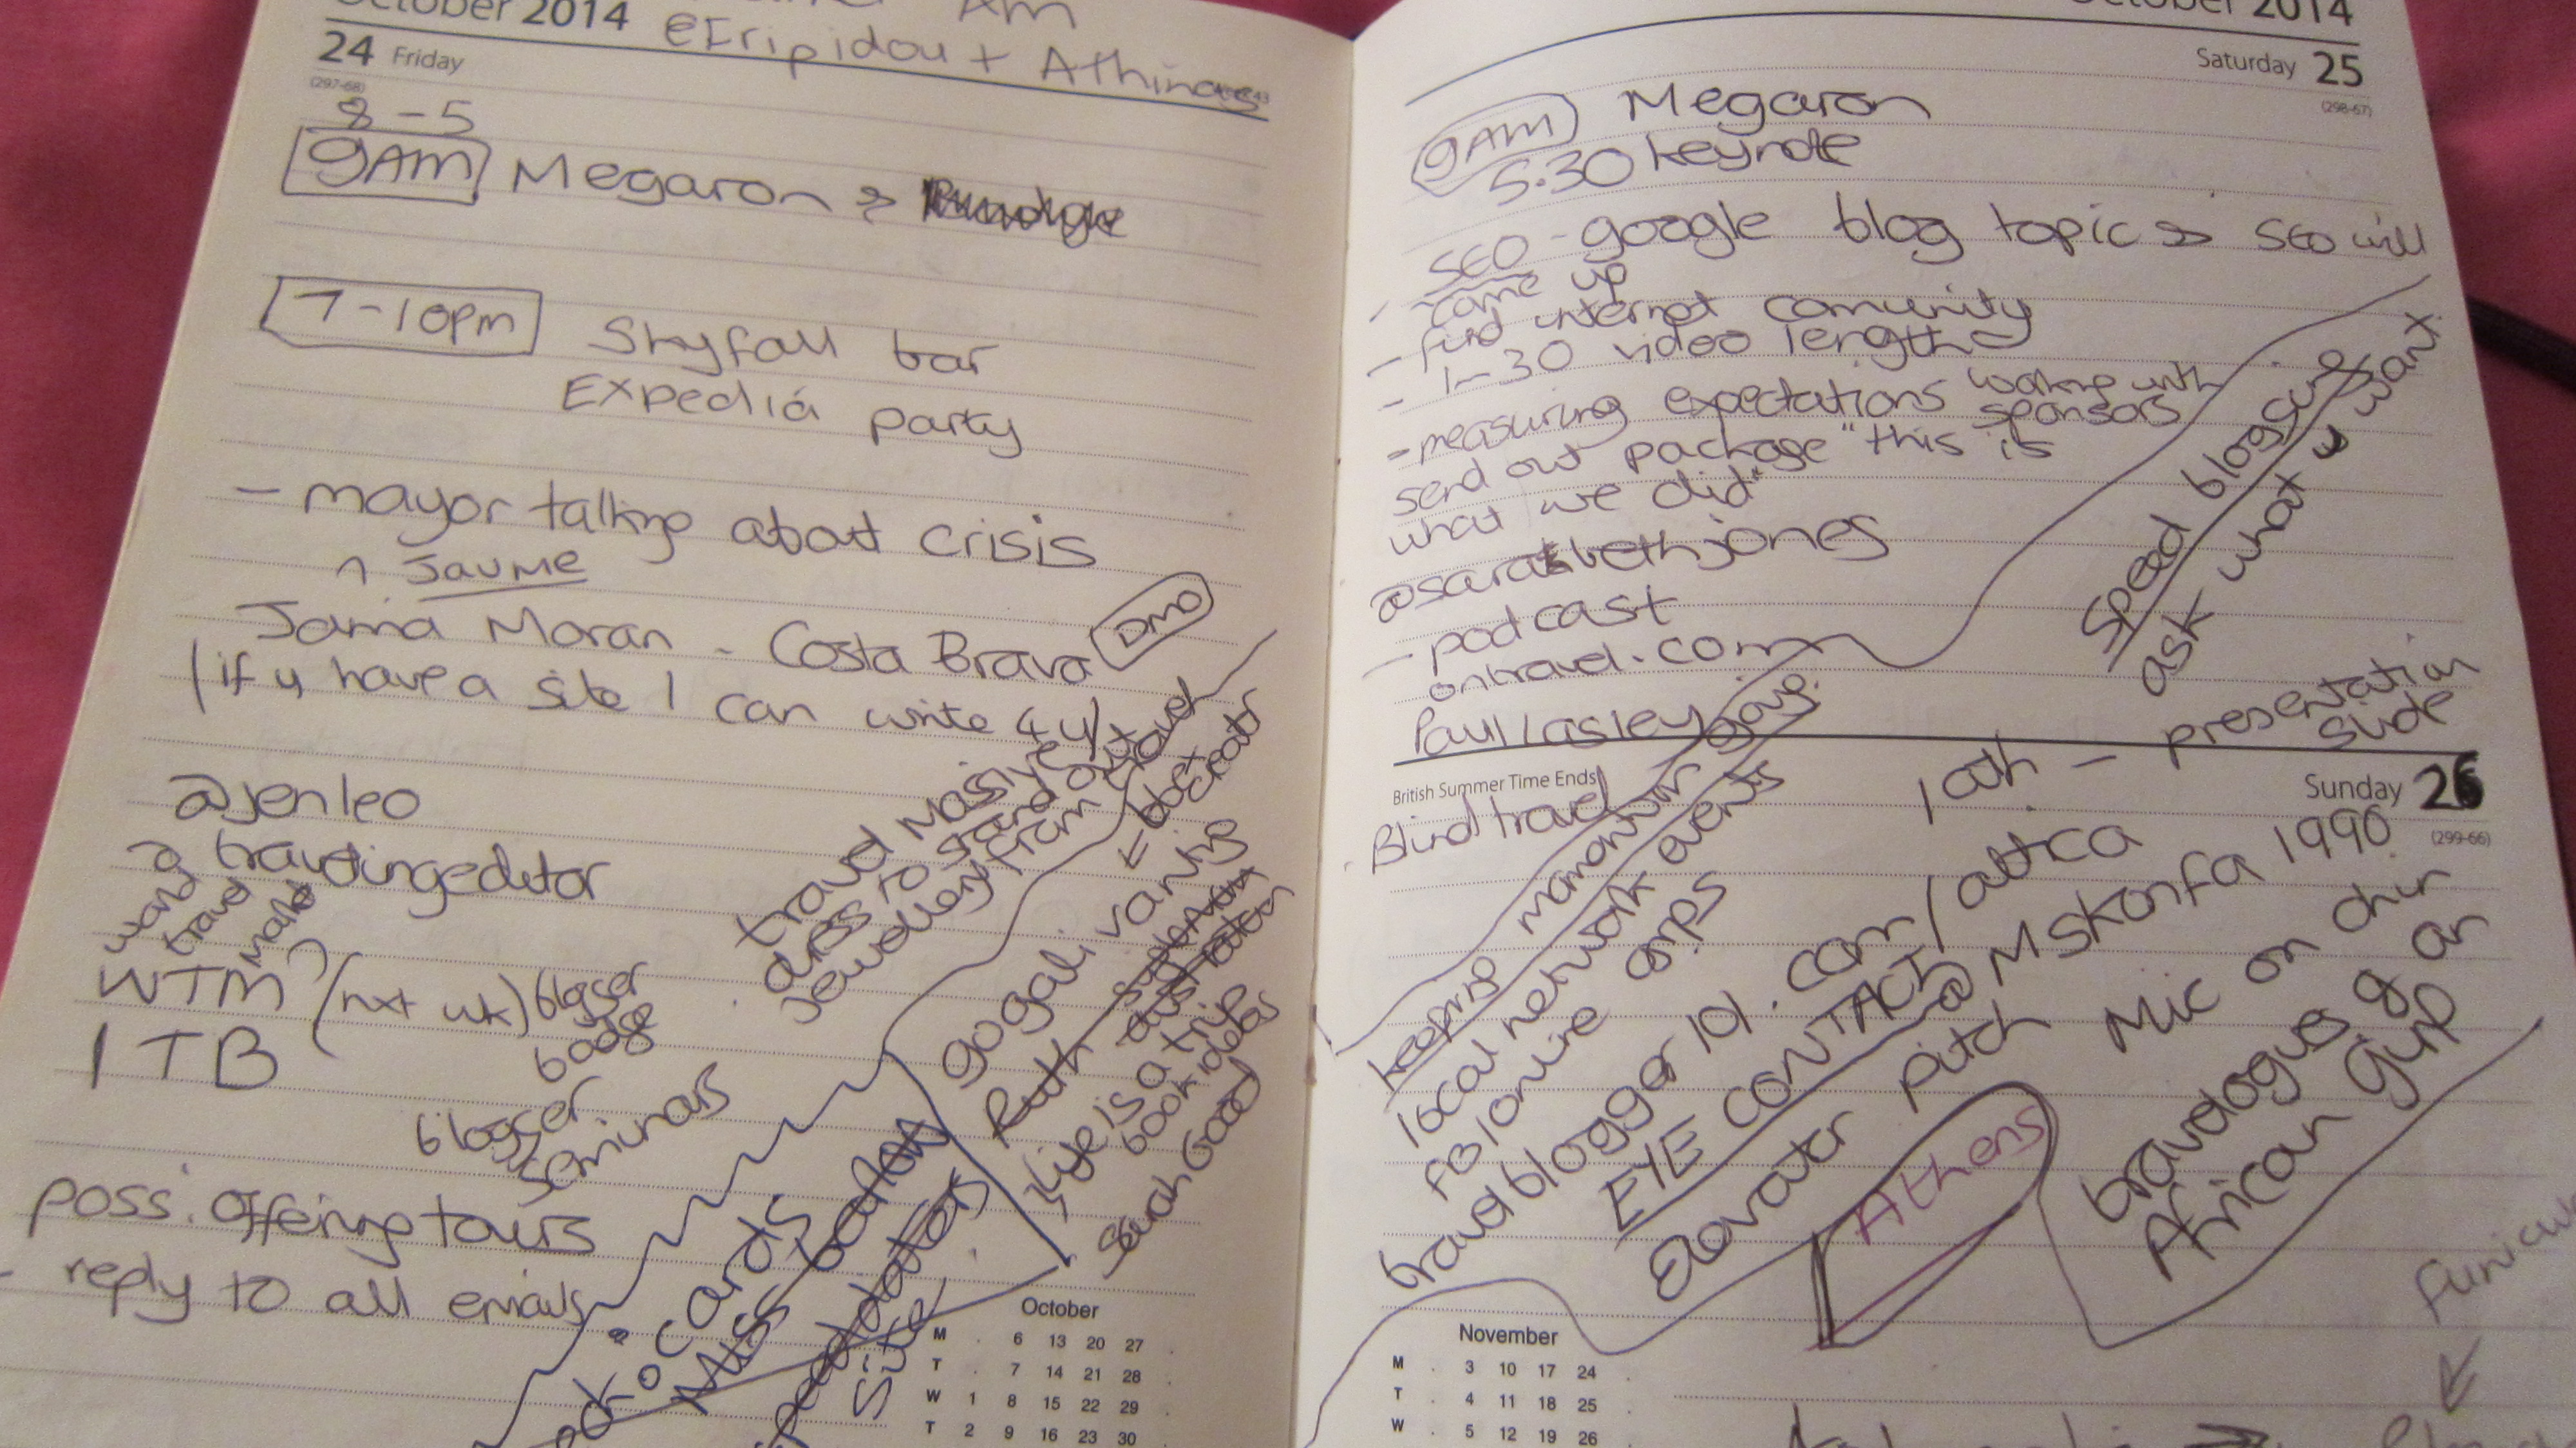 October 2014
Am
@Eripidou + Athinas
24 Friday
(297-68)
8-5
9AM Megaron &
7-10pm Skyfall bar
Expedia party
- mayor talking about crisis
Jaume
Jama Moran - Costa Brava DMO
(if u have a site I can write 4 u)
@jenleo
@travelingeditor
world
travel
market
WTM (nxt wk) blogger
badge
ITB
blogger
seminars
poss. offering tours
- reply to all emails
travel massive
dress to stand out
jewellery from travel
gogali varing
Ruth
life is a trip
book ideas
Sarah Good
cards
Miss
site
October
M 6 13 20 27
T 7 14 21 28
W 1 8 15 22 29
T 2 9 16 23 30
October 2014
Saturday 25
(298-67)
9AM Megaron
5.30 keynote
SEO - google blog topic SEO will
come up
- find internet comunity
- 1-30 video length
- measuring expectations working with
sponsors
send out package "this is
what we did"
@sarabethjones
- podcast
ontravel.com
Paul Lasley
Speed blogging
ask what u want
British Summer Time Ends
Sunday 26
(299-66)
Blind travel
keeping momentum going
local network events
FB / online grps
- presentation
slide
travelblogger101.com/attca
EYE CONTACT @MSKonfa1990
Elevator pitch
Mic on chin
Athens
African Grip
November
M 3 10 17 24
T 4 11 18 25
W 5 12 19 26